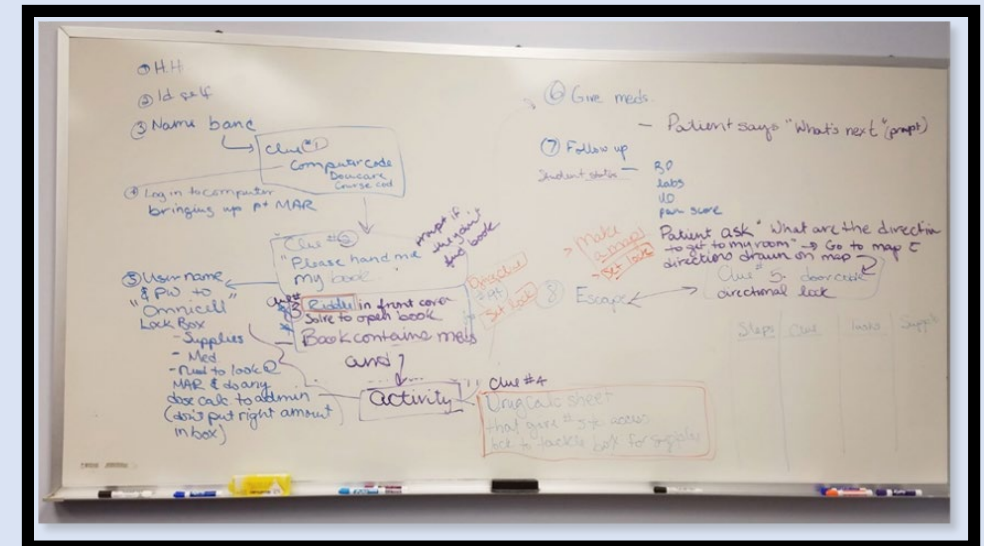 ① H.H
② Id self
③ Name band
Clue #1
Computer code
Course cod
④ Log in to computer
bringing up pt MAR
Clue #2
"Please hand me
my book"
prompt if
they can't
find book
⑤ User name
& PW to
"Omnicell"
Lock Box
- Supplies
- Med
- Need to look @
MAR & do any
dose calc to admin
(don't put right amount
in box)
Clue #
3 Riddle in front cover
Solve to open book
Book contains meds
and
activity
Clue #4
Drug Calc sheet
that give #'s to access
lock to tackle box for supplies
⑥ Give meds
- Patient says "What's next" (prompt)
⑦ Follow up
Student states -
BP
labs
UO
pain score
Patient ask "What are the direction
to get to my room" → Go to map c
directions drawn on map
Clue # 5. door code
directional lock
> Make
a map
> Set locks
Drug Calc
Set lock
⑧ Escape
Steps Clue Tasks Suppli